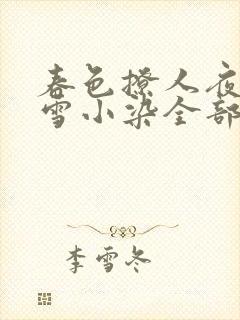 春色撩人夜
雪小染全部
李雪冬